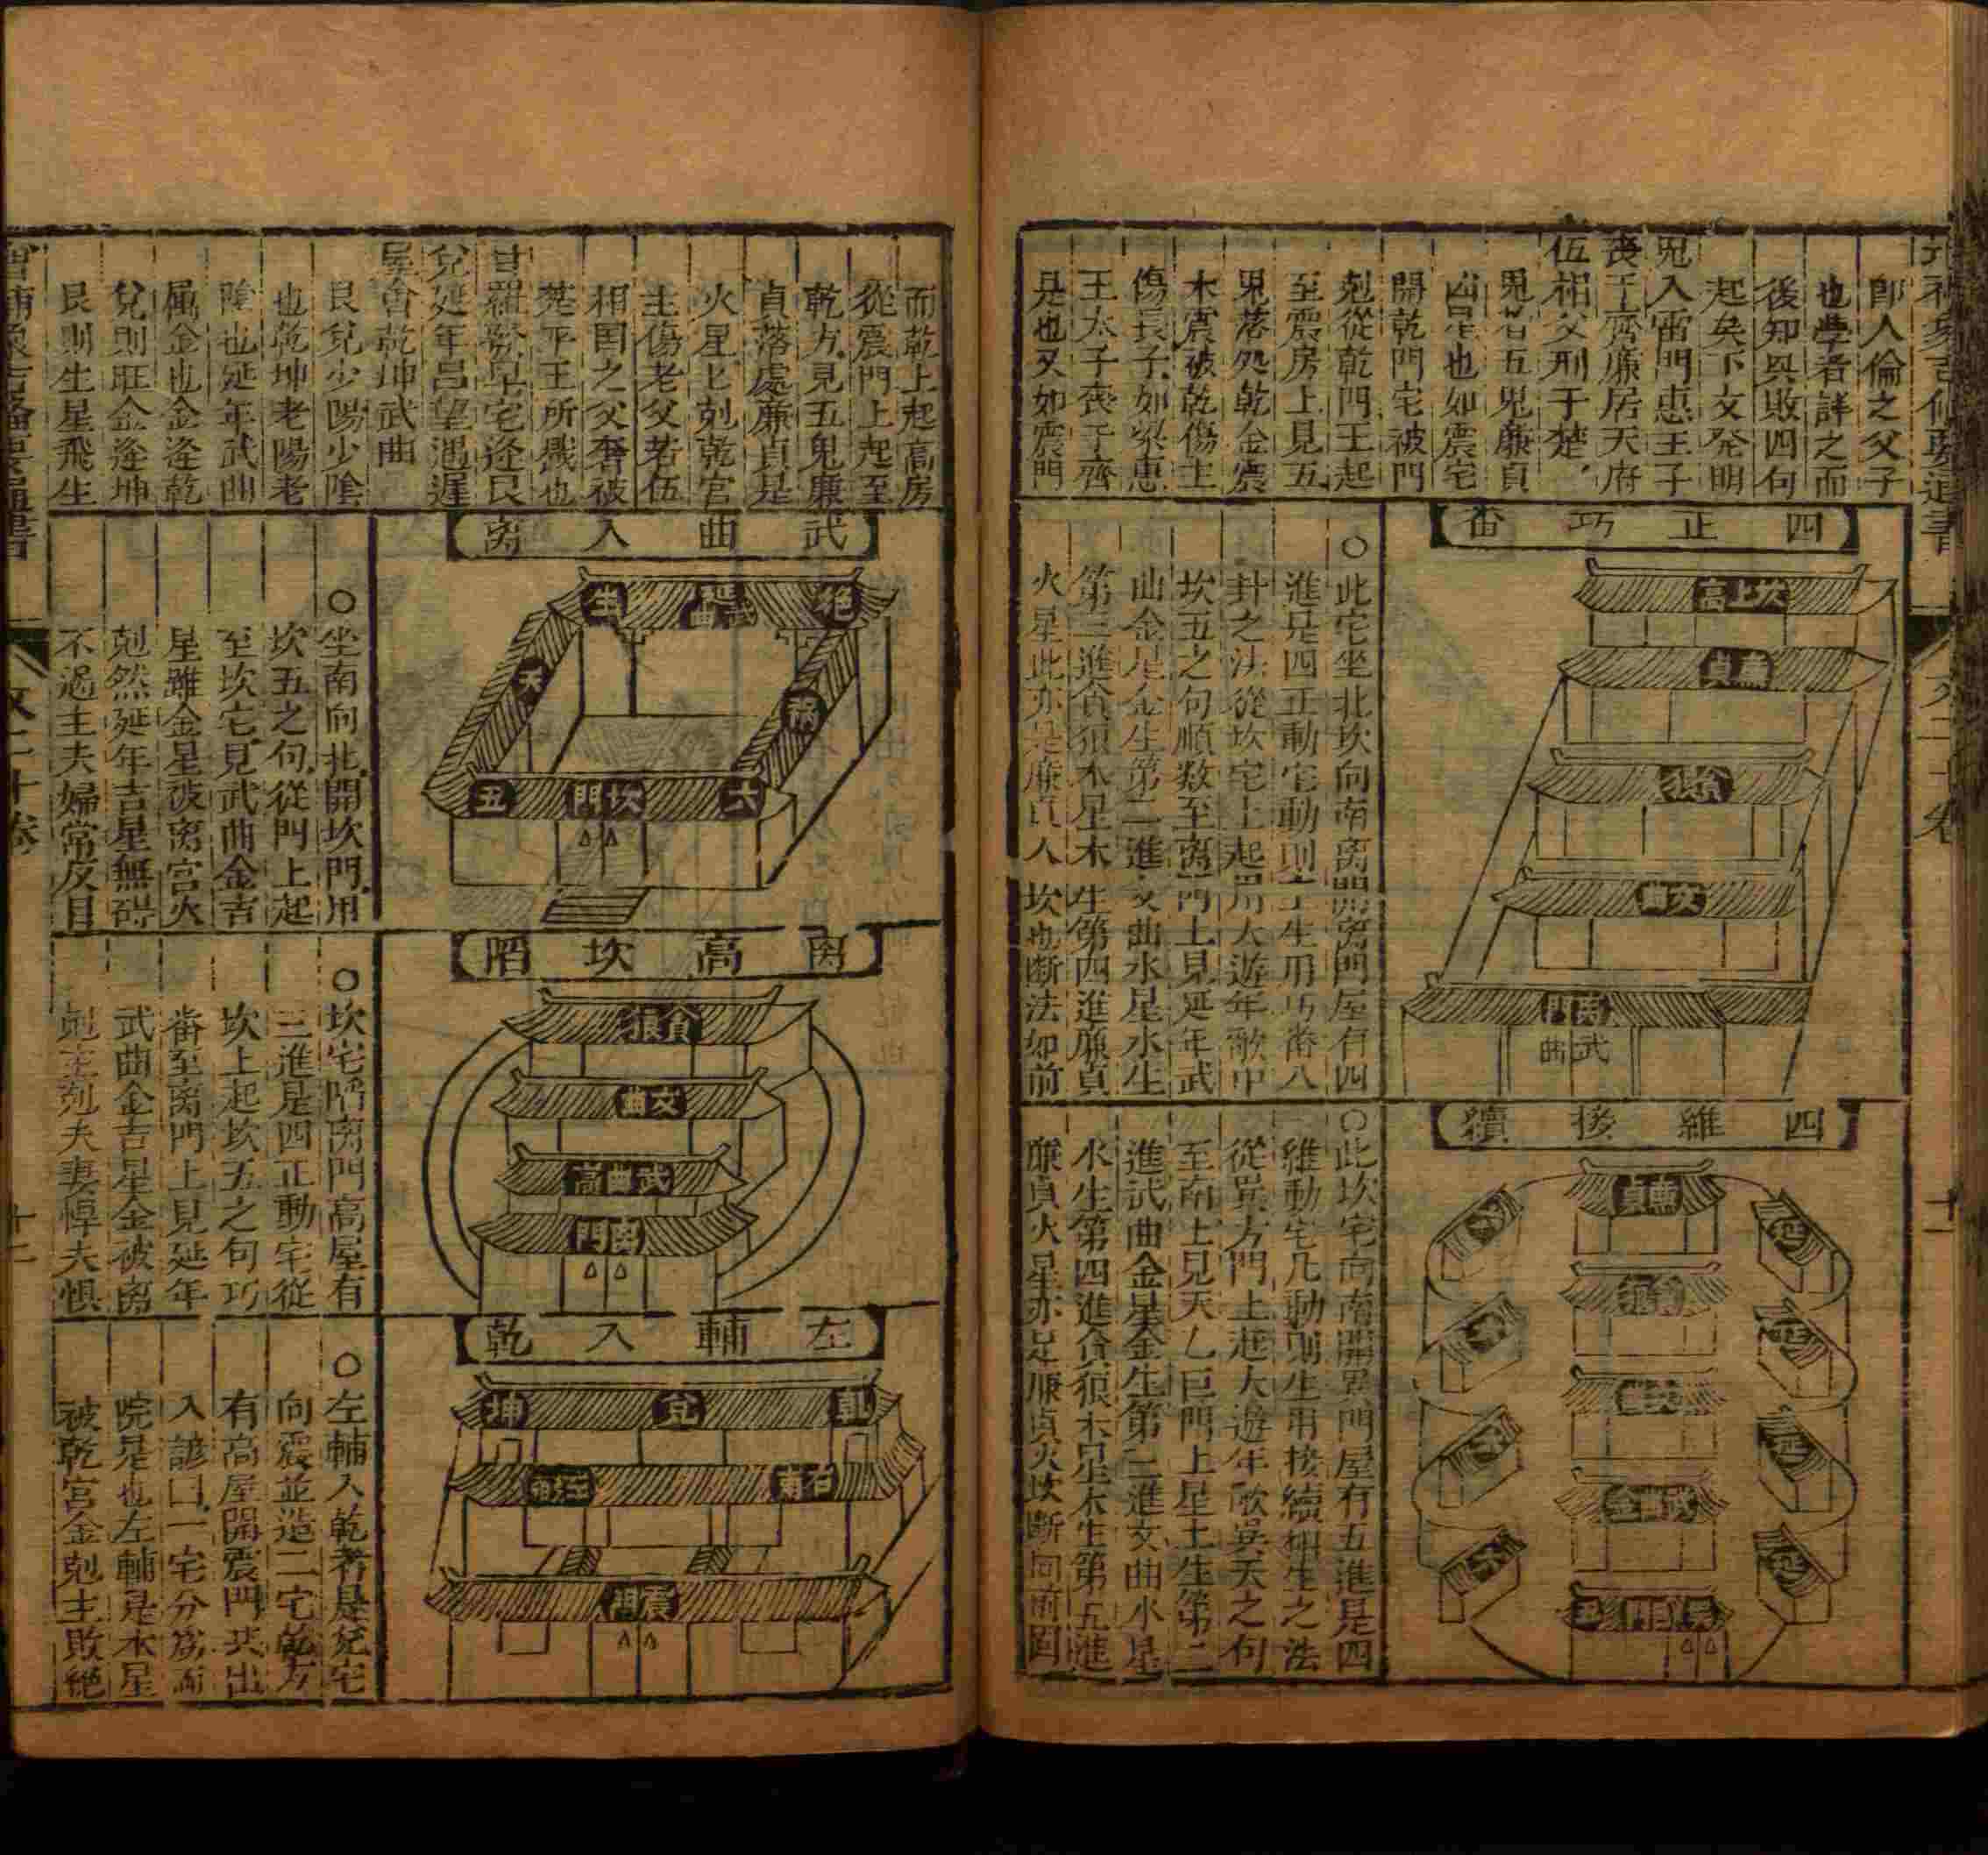 郎人倫之父子
也學者詳之而
後知與敗四句
起矣下文發明
鬼入雷門惠王子
喪于齊廉居天府
伍相父刑于楚
鬼者五鬼廉貞
也如震宅
開乾門宅被門
剋從乾門王起
至震房上見五
鬼落処乾金震
木震被乾傷主
傷長子如梁惠
王太子喪于齊
是也又如震門
四正巧番
坎上高
廉貞
貪狼
文曲
离門
武曲
○此宅坐北坎向南离開离門屋有四
進是四正動宅動則生用巧番八
卦之法從坎宅上起用大遊年歌中
坎五之句順数至离門上見延年武
曲金星金生第二進文曲水星水生
第三進貪狼木星木生第四進廉貞
火星此亦是廉貞入坎也断法如前
四維接續
廉貞
○此坎宅向南開巽門屋有五進是四
維動宅凡動則生用接續相生之法
從巽方門上起大遊年歌巽天之句
至南上見天乙巨門土星土生第二
進武曲金星金生第三進文曲水星
水生第四進貪狼木星木生第五進
廉貞火星亦是廉貞火坎断同前圖
而乾上起高房
從震門上起至
乾方見五鬼廉
貞落處廉貞是
火星上剋乾宮
主傷老父若伍
相国之父奢被
楚平王所戮也
甘羅發早宅逢艮
兌延年呂望遇遲
屋會乾坤武曲
艮兌少陽少陰
也乾坤老陽老
陰也延年武曲
属金也金逢乾
兌則旺金逢坤
艮則生星飛生
武曲入离
生
延武曲
絶
天
禍
五
坎門
六
○坐南向北開坎門用
坎五之句從門上起
至坎宅見武曲金吉
星雖金星被离宮火
剋然延年吉星無碍
不過主夫婦常反目
离高坎陷
貪狼
文曲
武曲高
离門
○坎宅陷离門高屋有
三進是四正動宅從
坎上起坎五之句巧
番至离門上見延年
武曲金吉星金被离
剋主剋夫妻悼夫惧
左輔入乾
坤
兌
乾
震門
○左輔入乾者是兌宅
向震並造二宅乾方
有高屋開震門共出
入諺曰一宅分為兩
院是也左輔是木星
被乾宮金剋主敗絶